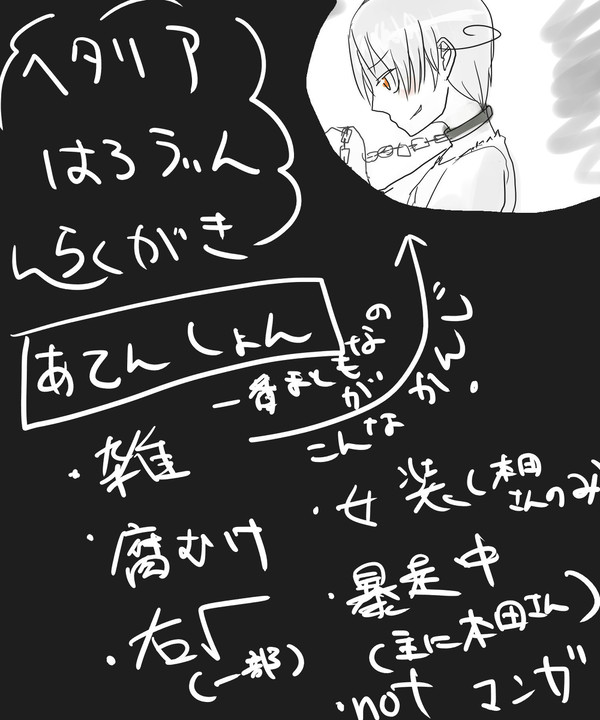 ヘタリア
はろうぃん
らくがき
あてんしょん
一番まともなのが
こんなかんじ。
・雑
・腐むけ
・右√
(一部)
・女装(本田さんのみ)
・暴走中
(主に本田さん)
・not マンガ